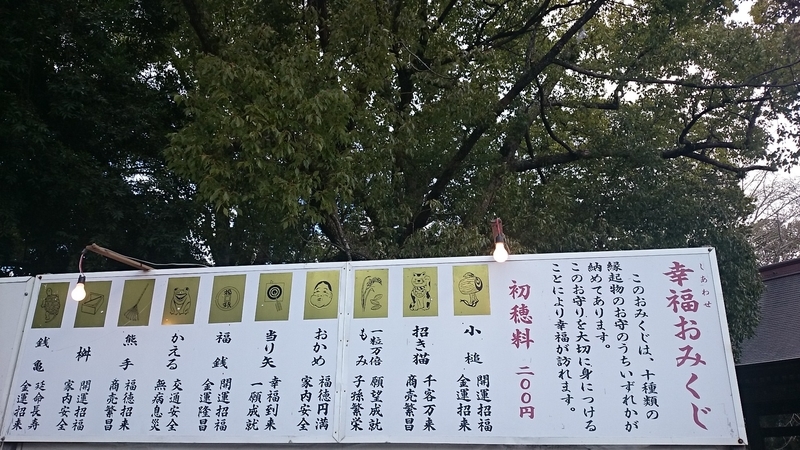 しあわせ
幸福おみくじ
このおみくじは、十種類の
縁起物のお守のうちいずれかが
納めてあります。
このお守りを大切に身につける
ことにより幸福が訪れます。
初穂料 二〇〇円
小槌
開運招福
金運招来
招き猫
千客万来
商売繁昌
一粒万倍
もみ
願望成就
子孫繁栄
おかめ
福徳円満
家内安全
当り矢
幸福到来
一願成就
福銭
開運招福
金運隆昌
かえる
交通安全
無病息災
熊手
福徳招来
商売繁昌
桝
開運招福
家内安全
銭亀
延命長寿
金運招来